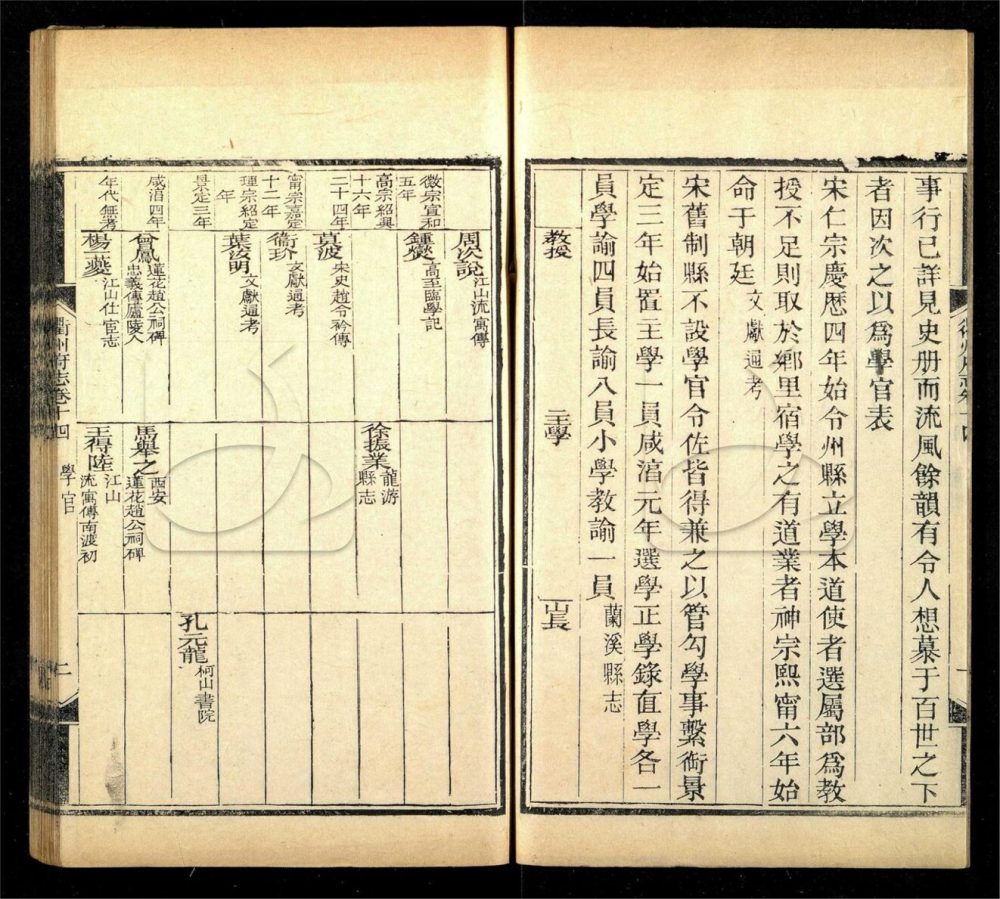 事行已詳見史册而流風餘韻有令人想慕于百世之下
者因次之以爲學官表
宋仁宗慶歷四年始令州縣立學本道使者選屬部爲教
授不足則取於鄉里宿學之有道業者神宗熙甯六年始
命于朝廷文獻通考
宋舊制縣不設學官令佐皆得兼之以管勾學事繫銜景
定三年始置主學一員咸湻元年選學正學錄直學各一
員學諭四員長諭八員小學教諭一員蘭溪縣志
教授
主學
山長
周次說江山流寓傳
徽宗宣和
五年
鍾爕高至臨學記
高宗紹興
十六年
徐振業龍游
縣志
二十四年
莫波宋史趙令衿傳
甯宗嘉定
十二年
衞玠文獻通考
理宗紹定
年
葉汝明文獻通考
景定三年
孔元龍柯山書院
咸湻四年
曾鳳蓮花趙公祠碑
忠義傳廬陵人
馬舉之西安
蓮花趙公祠碑
年代無考
楊一夔江山仕宦志
王得陸江山
流寓傳南渡初
衢州府志卷十四
學官
二